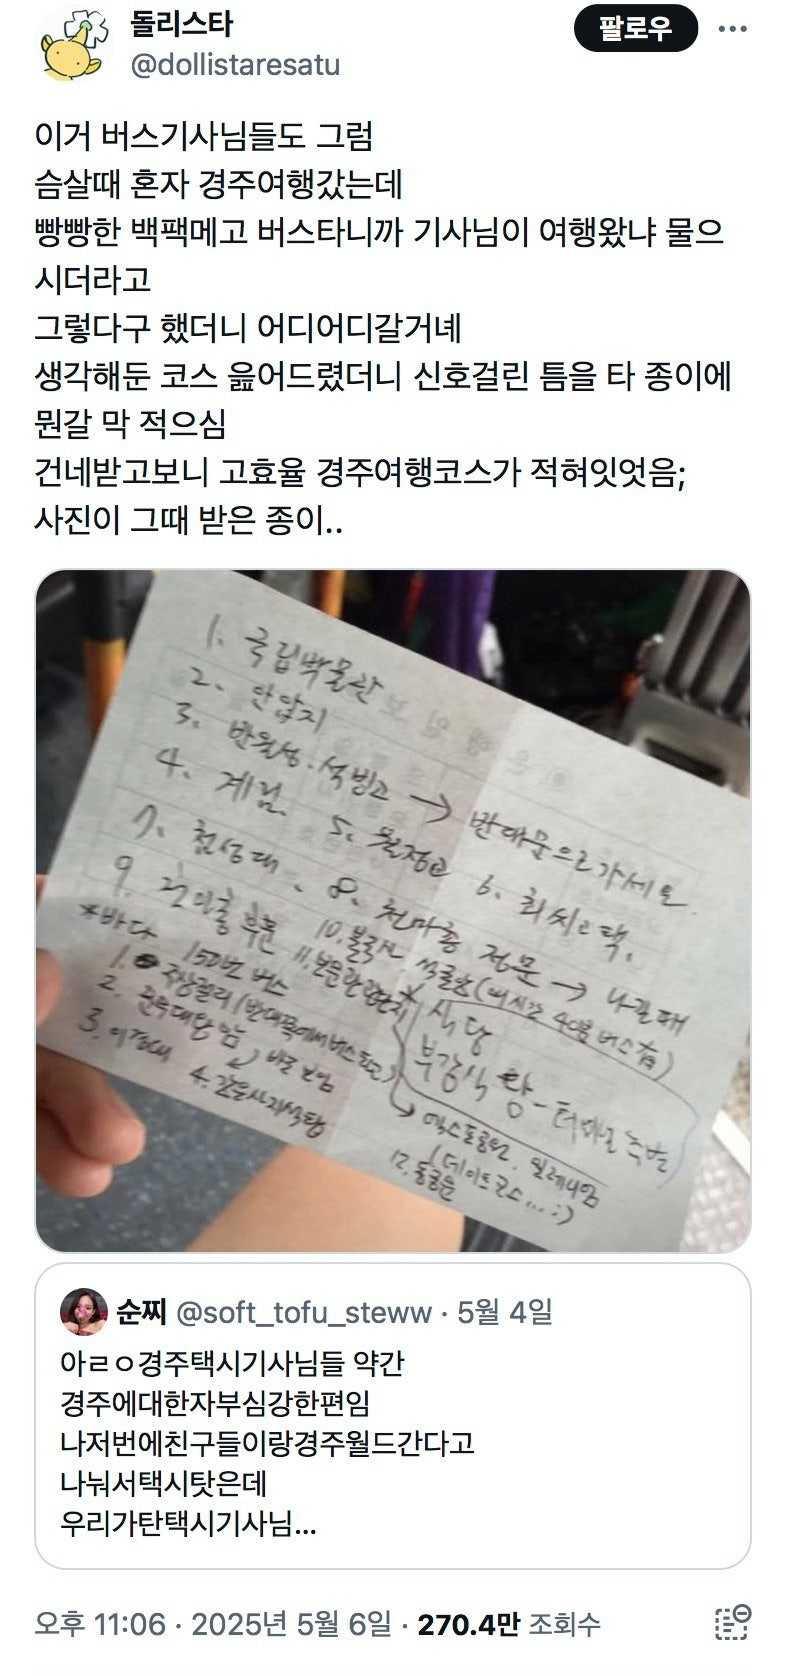 돌리스타
팔로우
@dollistaresatu
이거 버스기사님들도 그럼
슴살때 혼자 경주여행갔는데
빵빵한 백팩메고 버스타니까 기사님이 여행왔냐 물으
시더라고
그렇다구 했더니 어디어디갈거녜
생각해둔 코스 읊어드렸더니 신호걸린 틈을 타 종이에
뭔갈 막 적으심
건네받고보니 고효율 경주여행코스가 적혀잇엇음;
사진이 그때 받은 종이..
1. 국립박물관
2. 안압지
3. 반월성. 석빙고 → 반대문으로가세요.
4. 계림. 5. 월정교 6. 최씨고택.
7. 첨성대. 8. 천마총 정문 → 나갈때
9. 천마총 후문 10. 불국사 석굴암 (매시간 40분 버스 有)
*바다 150번 버스 11. 보문관광단지
1. 주상절리 (반대쪽에서 버스타고)
2. 문무대왕릉 바로 보임
3. 이견대 4. 감은사지석탑
* 식당
부강식당 -
→ 엑스포공원. 밀레니엄
(데이트코스...:)
12. 동궁원
순찌 @soft_tofu_steww · 5월 4일
아ㄹㅇ경주택시기사님들 약간
경주에대한자부심강한편임
나저번에친구들이랑경주월드간다고
나눠서택시탓은데
우리가탄택시기사님...
오후 11:06 · 2025년 5월 6일 · 270.4만 조회수